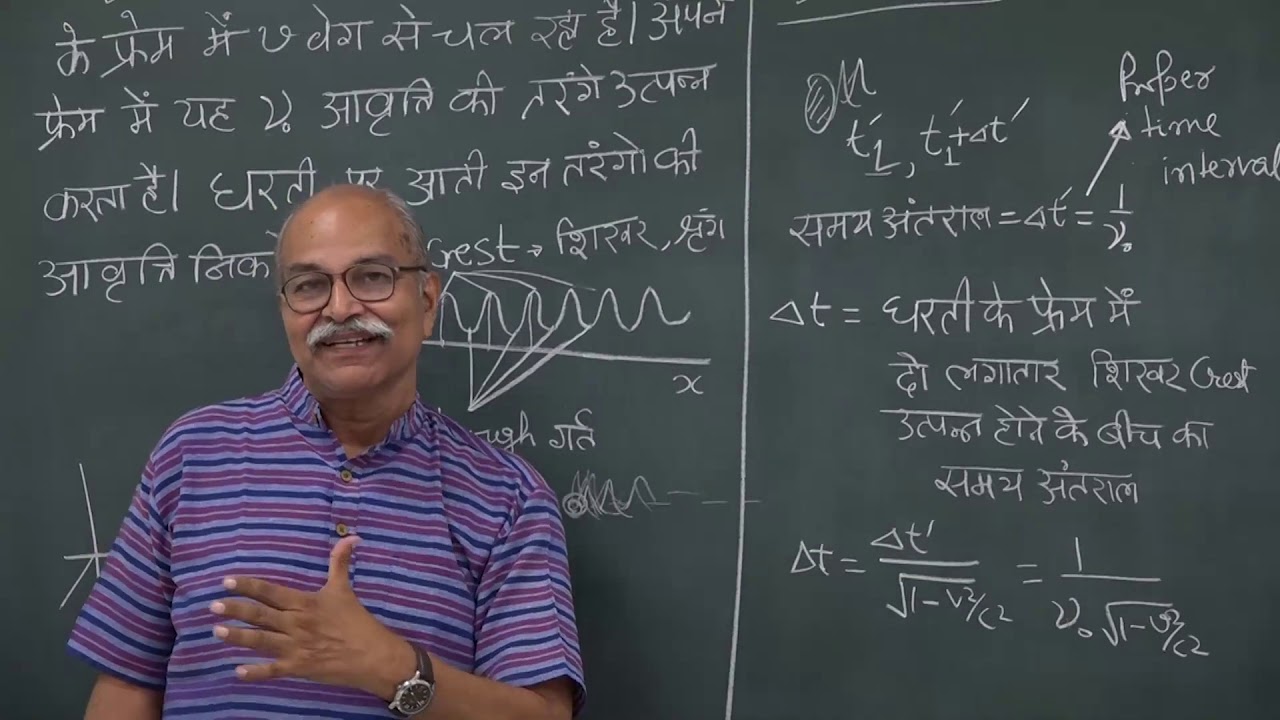 के फ्रेम में v वेग से चल रहा है। अपने
फ्रेम में यह ν₀ आवृत्ति की तरंगे उत्पन्न
करता है। धरती पर आती इन तरंगो की
आवृत्ति
Crest → शिखर, श्रृंग
x
गर्त
t₁′, t₁′+Δt′
Proper
time
interval
समय अंतराल = Δt′ = 1/ν₀
Δt = धरती के फ्रेम में
दो लगातार शिखर Crest
उत्पन्न होने के बीच का
समय अंतराल
Δt = Δt′/√1-v²/c² = 1/ν₀√1-v²/c²